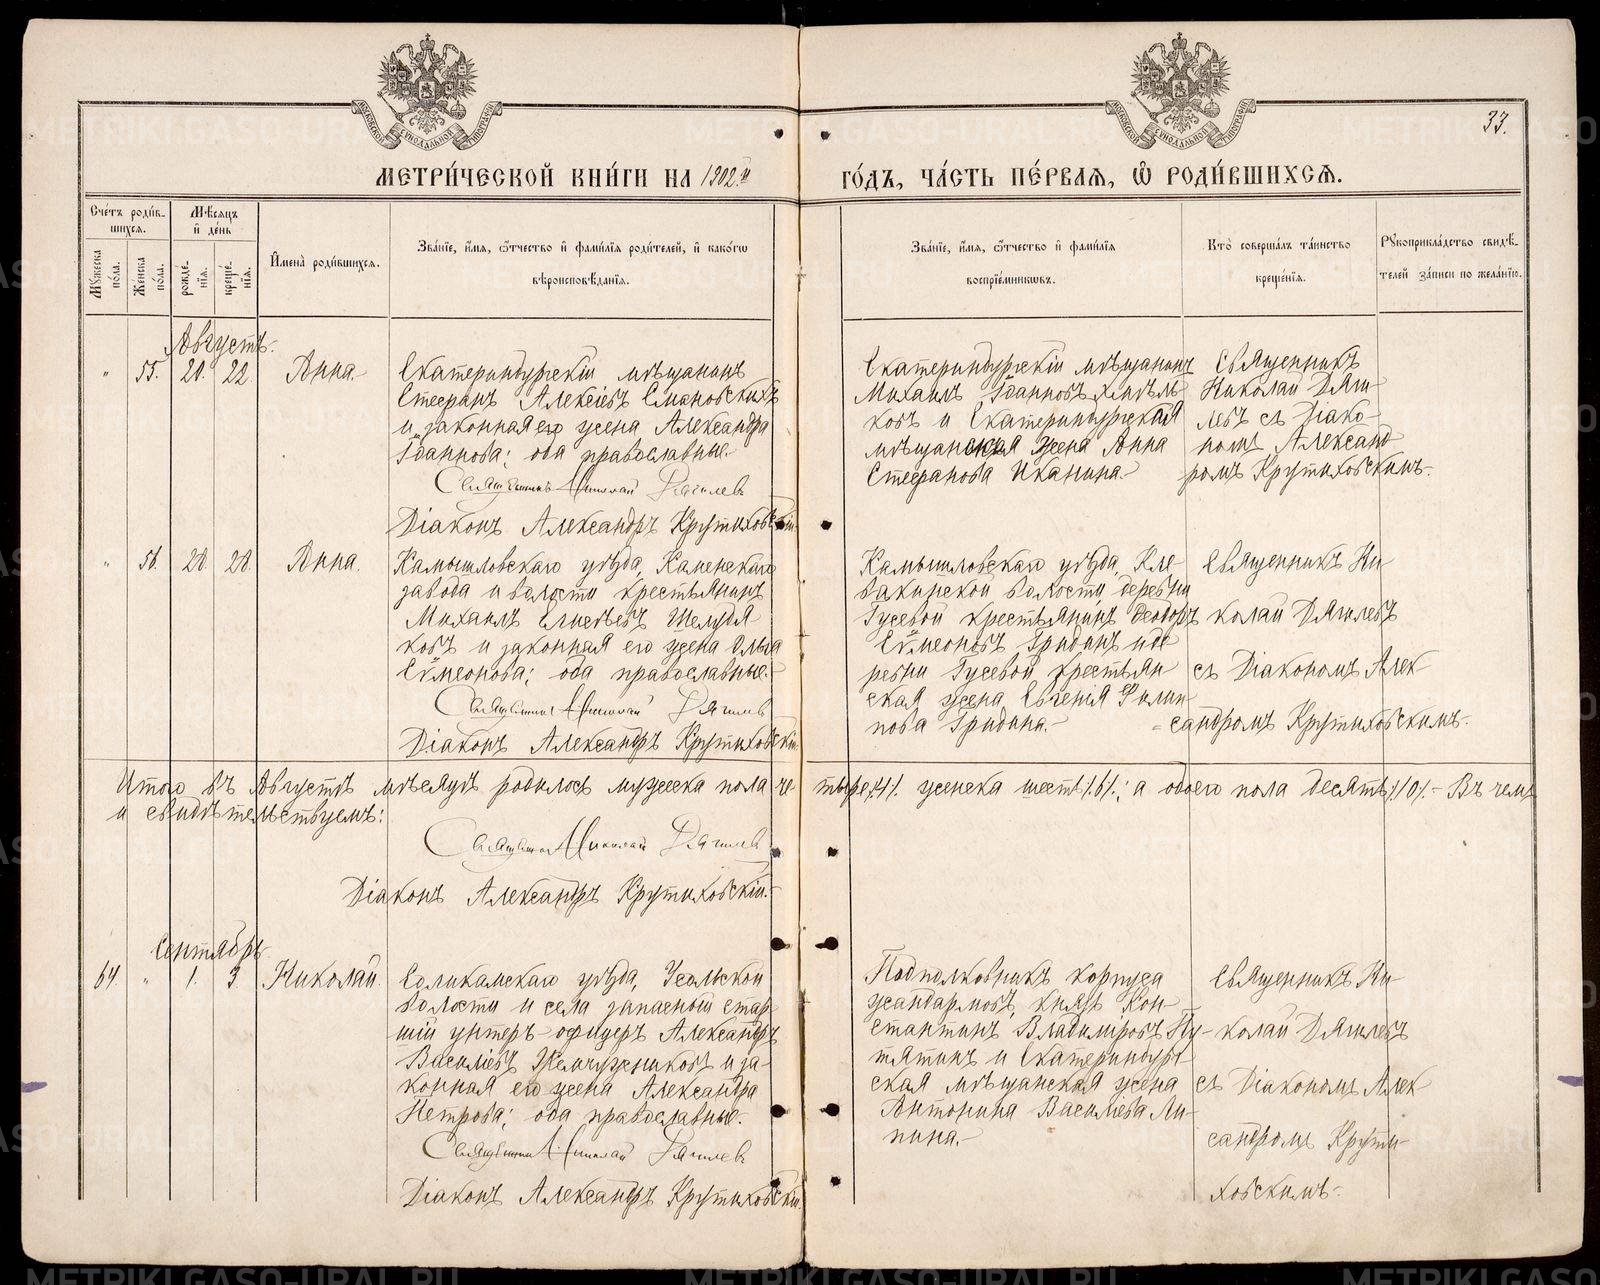 33.
МЕТРИ́ЧЕСКОЙ КНИ́ГИ НА 1902.й ГО́ДЪ, ЧА́СТЬ ПЕ́РВАѦ, Ѽ РОДИ́ВШИХСѦ.
Сче́тъ роди́вшихсѧ.
Мꙋжеска по́ла.
Же́нска по́ла.
Мѣ́сѧцъ и҆ де́нь
рожде́нїѧ.
креще́нїѧ.
И҆мена̀ роди́вшихсѧ.
Зва́нїе, и҆́мѧ, ѻ҆́тчество и҆ фами́лїѧ роди́телей, и҆ како́гѡ
вѣроисповѣ́данїѧ.
Зва́нїе, и҆́мѧ, ѻ҆́тчество и҆ фами́лїѧ
воспрїе́мникѡвъ.
Кто̀ соверша́лъ та́инство
креще́нїѧ.
Рꙋкоприкла́дство свидѣ́-
телей за́писи по жела́нїю.
Августъ.
" 55. 20. 22. Анна.
Екатеринбургскій мѣщанинъ
Стефанъ Алексіевъ Смановскихъ
и законная его жена Александра
Іоаннова; оба православные.
Священникъ Николай Дягилевъ
Діаконъ Александръ Крутиховскій.
Екатеринбургскій мѣщанинъ
Михаилъ Іоанновъ
ковъ и Екатеринбургская
мѣщанская жена Анна
Стефанова Иканина.
Священникъ
Николай Дяги-
левъ съ Діако-
номъ Александ
ромъ Крутиховскимъ.
" 56. 28. 28. Анна.
Камышловскаго уѣзда, Каменскаго
завода и волости крестьянинъ
Михаилъ Елисѣевъ Шелудя
ковъ и законная его жена Ольга
Сѵмеонова; оба православные.
Священникъ Николай Дягилевъ
Діаконъ Александръ Крутиховскій.
Камышловскаго уѣзда, Кле-
вакинской волости, деревни
Гусевой крестьянинъ Ѳеодоръ
Сѵмеоновъ Гридинъ и де
ревни Гусевой крестьян
ская жена Евгенія Филип
пова Гридина.
Священникъ Ни-
колай Дягилевъ
съ Діакономъ Алек
сандромъ Крутиховскимъ.
Итого въ Августѣ мѣсяцѣ родилось мужеска пола четыре /4/. женска шесть /6/.; а обоего пола десять /10/. Въ чемъ
и свидѣтельствуемъ:
Священникъ Николай Дягилевъ
Діаконъ Александръ Крутиховскій.
Сентябрь
64. " 1. 3. Николай.
Соликамскаго уѣзда, Усольской
волости и села запасный стар-
шій унтеръ-офицеръ Александръ
Василіевъ Жемчужниковъ и за-
конная его жена Александра
Петрова; оба православные.
Священникъ Николай Дягилевъ
Діаконъ Александръ Крутиховскій.
Подполковникъ корпуса
жандармовъ, князь Кон-
стантинъ Владиміровъ Пу-
тятинъ и Екатеринбург
ская мѣщанская жена
Антонина Василіева Ли-
пина.
Священникъ Ни-
колай Дягилевъ
съ Діакономъ Алек
сандромъ Крути-
ховскимъ.
METRIKI.GASO-URAL.RU